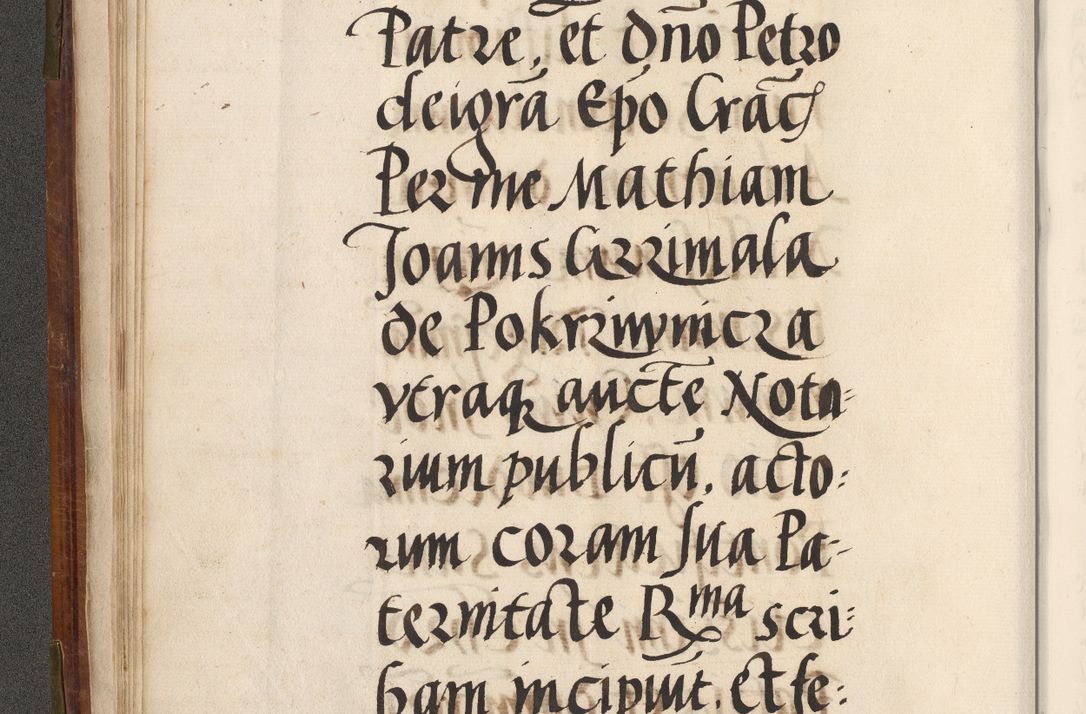 Patre, et dño Petro
dei grã Ep̃o Crac̃
Per me Mathiam
Joannis Grzimala
de Pokrziwnicza
vtraq auctẽ Nota=
rium publicũ, acto=
rum coram sua Pa=
ternitate Rma scri=
bam incipiũt. Et fe=